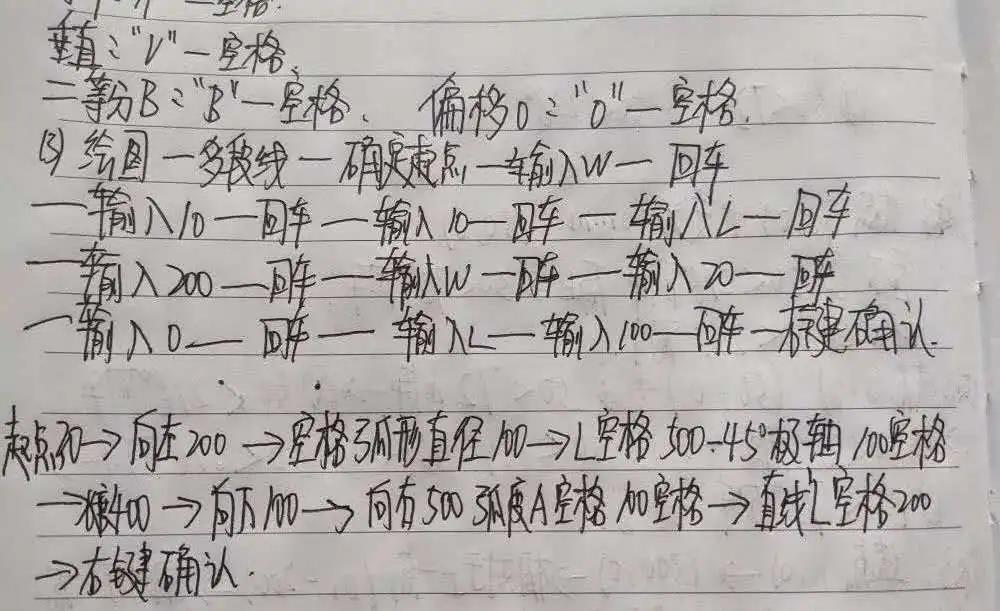 一空格.
垂直："V"一空格.
二等分B："B"一空格. 偏移O："O"一空格.
(3) 绘图一多段线一确定起点一输入W一回车
一输入10一回车一输入10一回车一输入L一回车
一输入200一回车一输入W一回车一输入20一回车
一输入0一回车一输入L一输入100一回车一右键确认.
起点30→向左200→空格弧形直径100→L空格500-45°极轴100空格
→400→向下100→向右500弧度A空格100空格→直线L空格200
→右键确认.